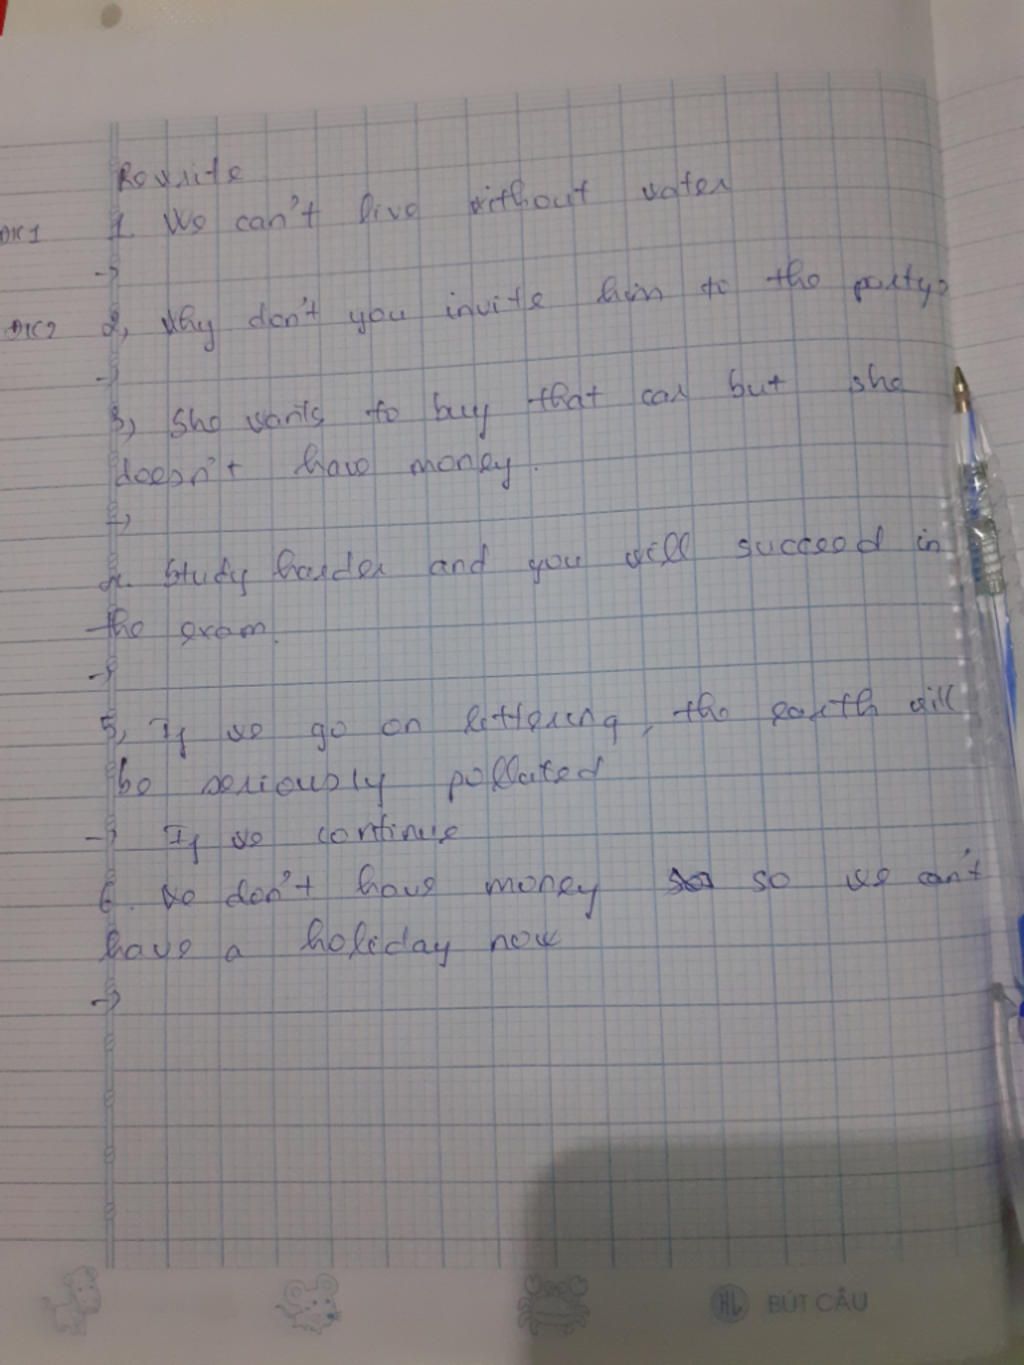 Rewrite
ĐK1 1. We can't live without water
->
ĐK2 2, Why don't you invite him to the party?
->
3, She wants to buy that car but she
doesn't have money.
->
4. Study harder and you will succeed in
the exam.
->
5, If we go on littering, the earth will
be seriously polluted
-> If we continue
6. We don't have money so we can't
have a holiday now
->
HL BÚT CÂU